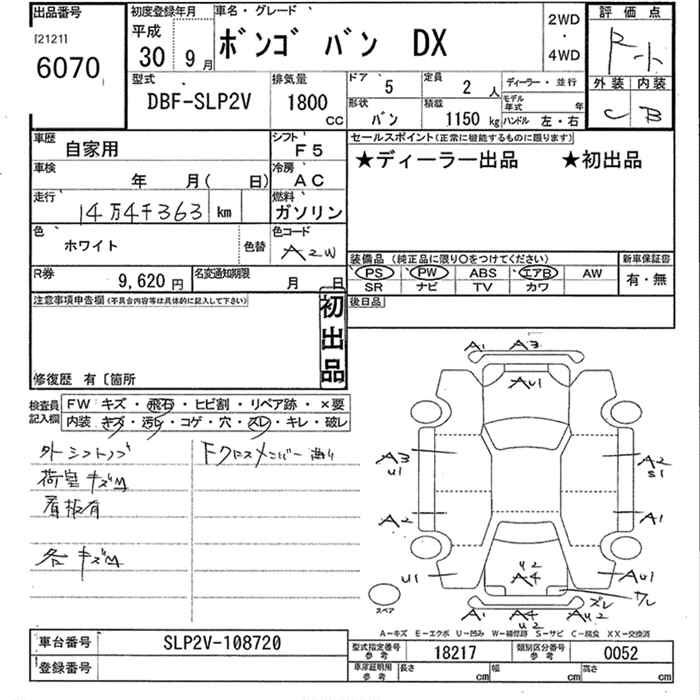 出品番号
[2121]
6070
初度登録年月
平成
30 9月
車名・グレード
ボンゴ バン DX
2WD
・
4WD
評価点
外装 内装
C B
型式
DBF-SLP2V
排気量
1800
CC
ドア 5
定員 2 人
ディーラー・並行
形状 バン
積載 1150 kg
モデル年式 年
ハンドル 左・右
車歴 自家用
シフト F5
車検 年 月( 日)
冷房 AC
走行 14万4千363 km
燃料 ガソリン
色 ホワイト
色替
色コード A2W
R券 9,620円
名変通知期限 月 日
セールスポイント(正常に機能するものに限ります)
★ディーラー出品 ★初出品
装備品(純正品に限り〇をつけてください)
新車保証書
PS PW ABS エアB AW
SR ナビ TV カワ
有・無
注意事項申告欄(不具合内容等は具体的に記入して下さい)
初出品
後日品
修復歴 有〔箇所
検査員記入欄
FW キズ・飛石・ヒビ割・リペア跡・×要
内装・キズ・汚レ・コゲ・穴・スレ・キレ・破レ
外シフトノブ
荷室キズM
看板有
各キズM
Fクロスメンバー曲り
A1 A3
AU1
A3
U1
A2
S1
A2
A1
U1
U2
A4
AU1
スペア
A1
A4
U2
AU2
ズレ
ワレ
A-キズ E-エクボ U-凹み W-補修跡 S-サビ C-腐食 XX-交換済
車台番号 SLP2V-108720
登録番号
型式指定番号 参考 18217
類別区分番号 参考 0052
車庫証明用 参考 長さ cm 幅 cm 高さ cm